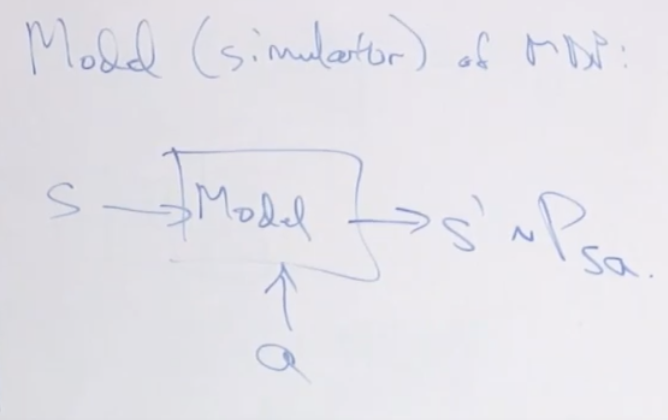 Model (simulator) of MDP:
S → Model → S' ~ P_sa.
a